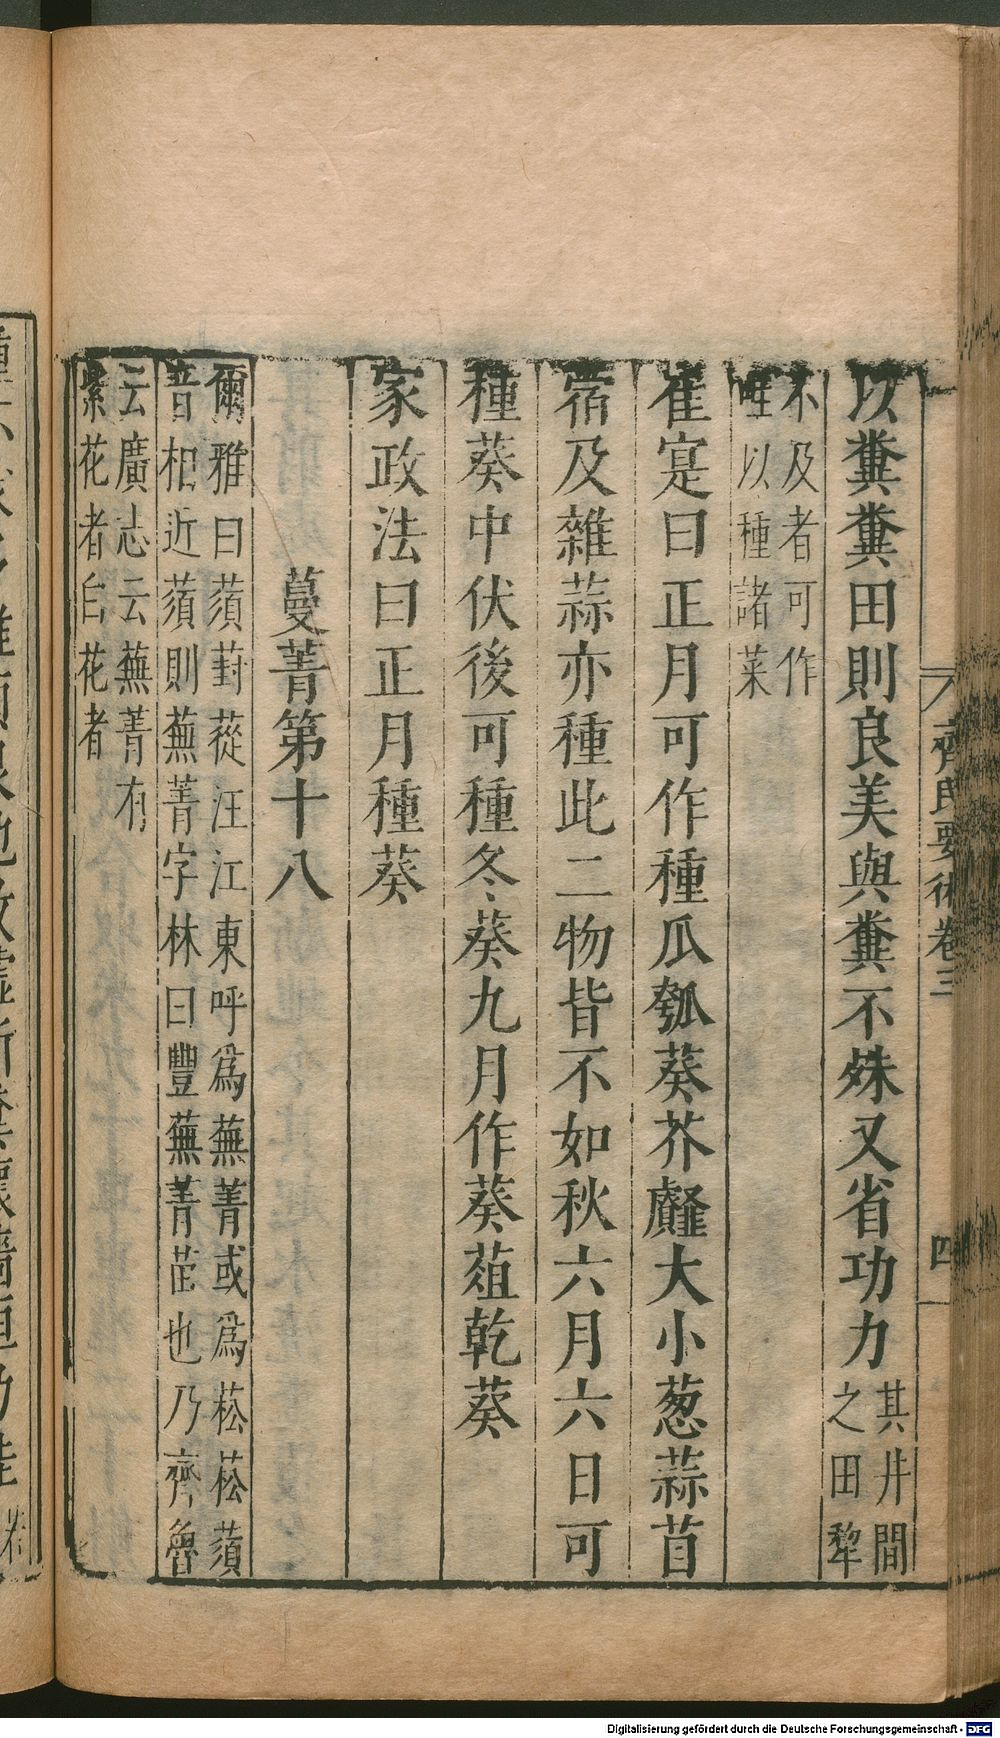 齊民要術卷三
四
以糞糞田則良美與糞不殊又省功力其井間之田犂
不及者可作
唯以種諸菜
崔寔曰正月可作種瓜瓠葵芥䪥大小葱蒜苜
宿及雜蒜亦種此二物皆不如秋六月六日可
種葵中伏後可種冬葵九月作葵葅乾葵
家政法曰正月種葵
蔓菁第十八
爾雅曰蕦葑蓯汪江東呼爲蕪菁或爲菘菘蕦
音相近蕦則蕪菁字林曰豐蕪菁苗也乃齊魯
云廣志云蕪菁有
紫花者白花者
Digitalisierung gefördert durch die Deutsche Forschungsgemeinschaft - DFG